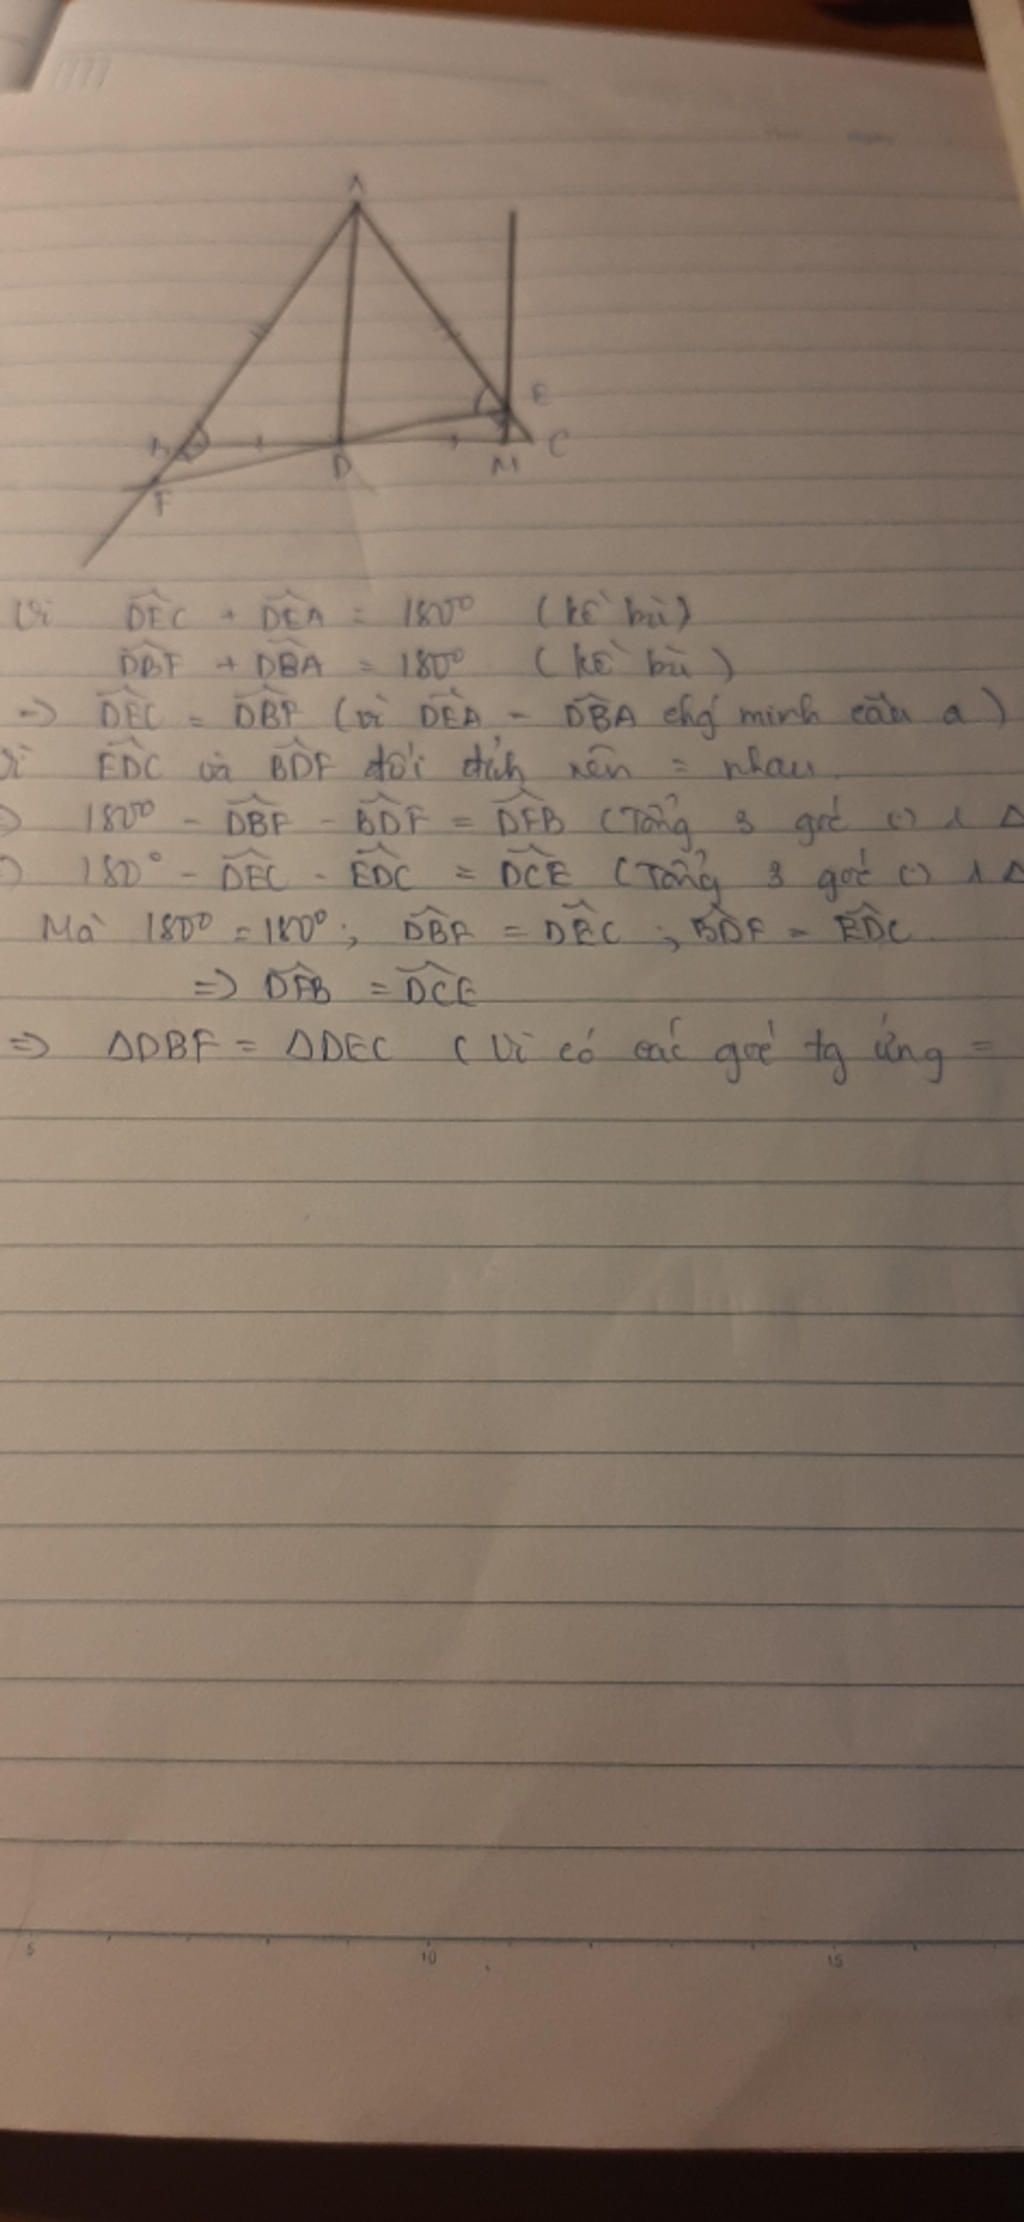 A
E
B
D
M
C
F
Vì DEC + DEA = 180° (kề bù)
DBF + DBA = 180° (kề bù)
=> DEC = DBF (vì DEA = DBA chứ minh câu a)
Vì EDC và BDF đối đỉnh nên = nhau
=> 180° - DBF - BDF = DFB (Tổng 3 góc () 1 Δ
=> 180° - DEC - EDC = DCE (Tổng 3 góc () 1 Δ
Mà 180° = 180°; DBF = DEC; BDF = EDC
=> DFB = DCE
=> ΔDBF = ΔDEC (Vì có các góc tg ứng =
5 10 15